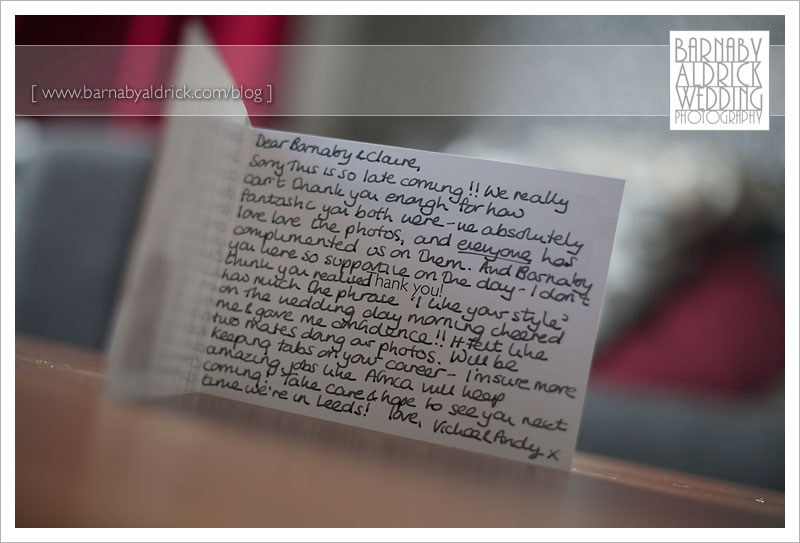 [ www.barnabyaldrick.com/blog ]
BARNABY
ALDRICK
WEDDING
PHOTOGRAPHY
Dear Barnaby & Claire,
Sorry This is so late coming!! We really
can't thank you enough for how
fantastic you both were - we absolutely
love love the photos, and everyone has
complimented us on them. And Barnaby
you were so supportive on the day - I don't
think you realised
Thank you!
how much the phrase 'I like your style'
on the wedding day morning cheered
me & gave me confidence!! It felt like
two mates doing our photos. Will be
keeping tabs on your career - I'm sure more
amazing jobs like Africa will keep
coming! Take care & hope to see you next
time we're in Leeds! Love, Vickie & Andy x